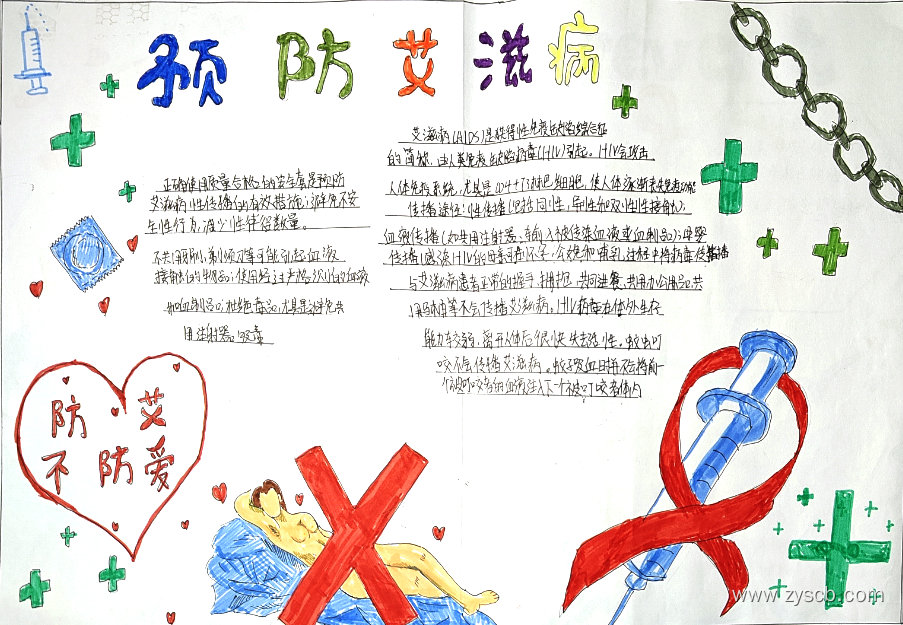 预防艾滋病
正确使用质量合格的安全套是预防
艾滋病性传播的有效措施;避免不安
全性行为,减少性伴侣数量。
不共用剃须刀、剃须刀等可能引起血液
接触的物品;使用经过严格检测的血液
和血制品;拒绝毒品,尤其是避免共
用注射器吸毒
艾滋病(AIDS)是获得性免疫缺陷综合征
的简称,由人类免疫缺陷病毒(HIV)引起。HIV会攻击
人体免疫系统,尤其是CD4+T淋巴细胞,使人体逐渐丧失免疫功能
传播途径:性传播(包括同性、异性和双性性接触);
血液传播(如共用注射器、输入被污染血液或血制品);母婴
传播(感染HIV的母亲可在怀孕、分娩和哺乳过程中将病毒传播
与艾滋病患者正常的握手、拥抱、共同进餐、共用办公用品、共
用马桶等不会传播艾滋病。HIV病毒在体外生存
能力较弱,离开人体后很快失去活性。蚊虫叮
咬不会传播艾滋病。蚊子吸血时并不会将前一
个被叮咬者的血液注入下一个被叮咬者体内
防艾
不防爱
www.zysco.com